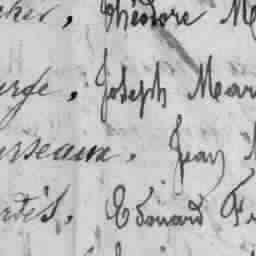 cker, Théodore M
urge, Joseph Mar
usseaux. Jean M
rtis. Edouard Fr